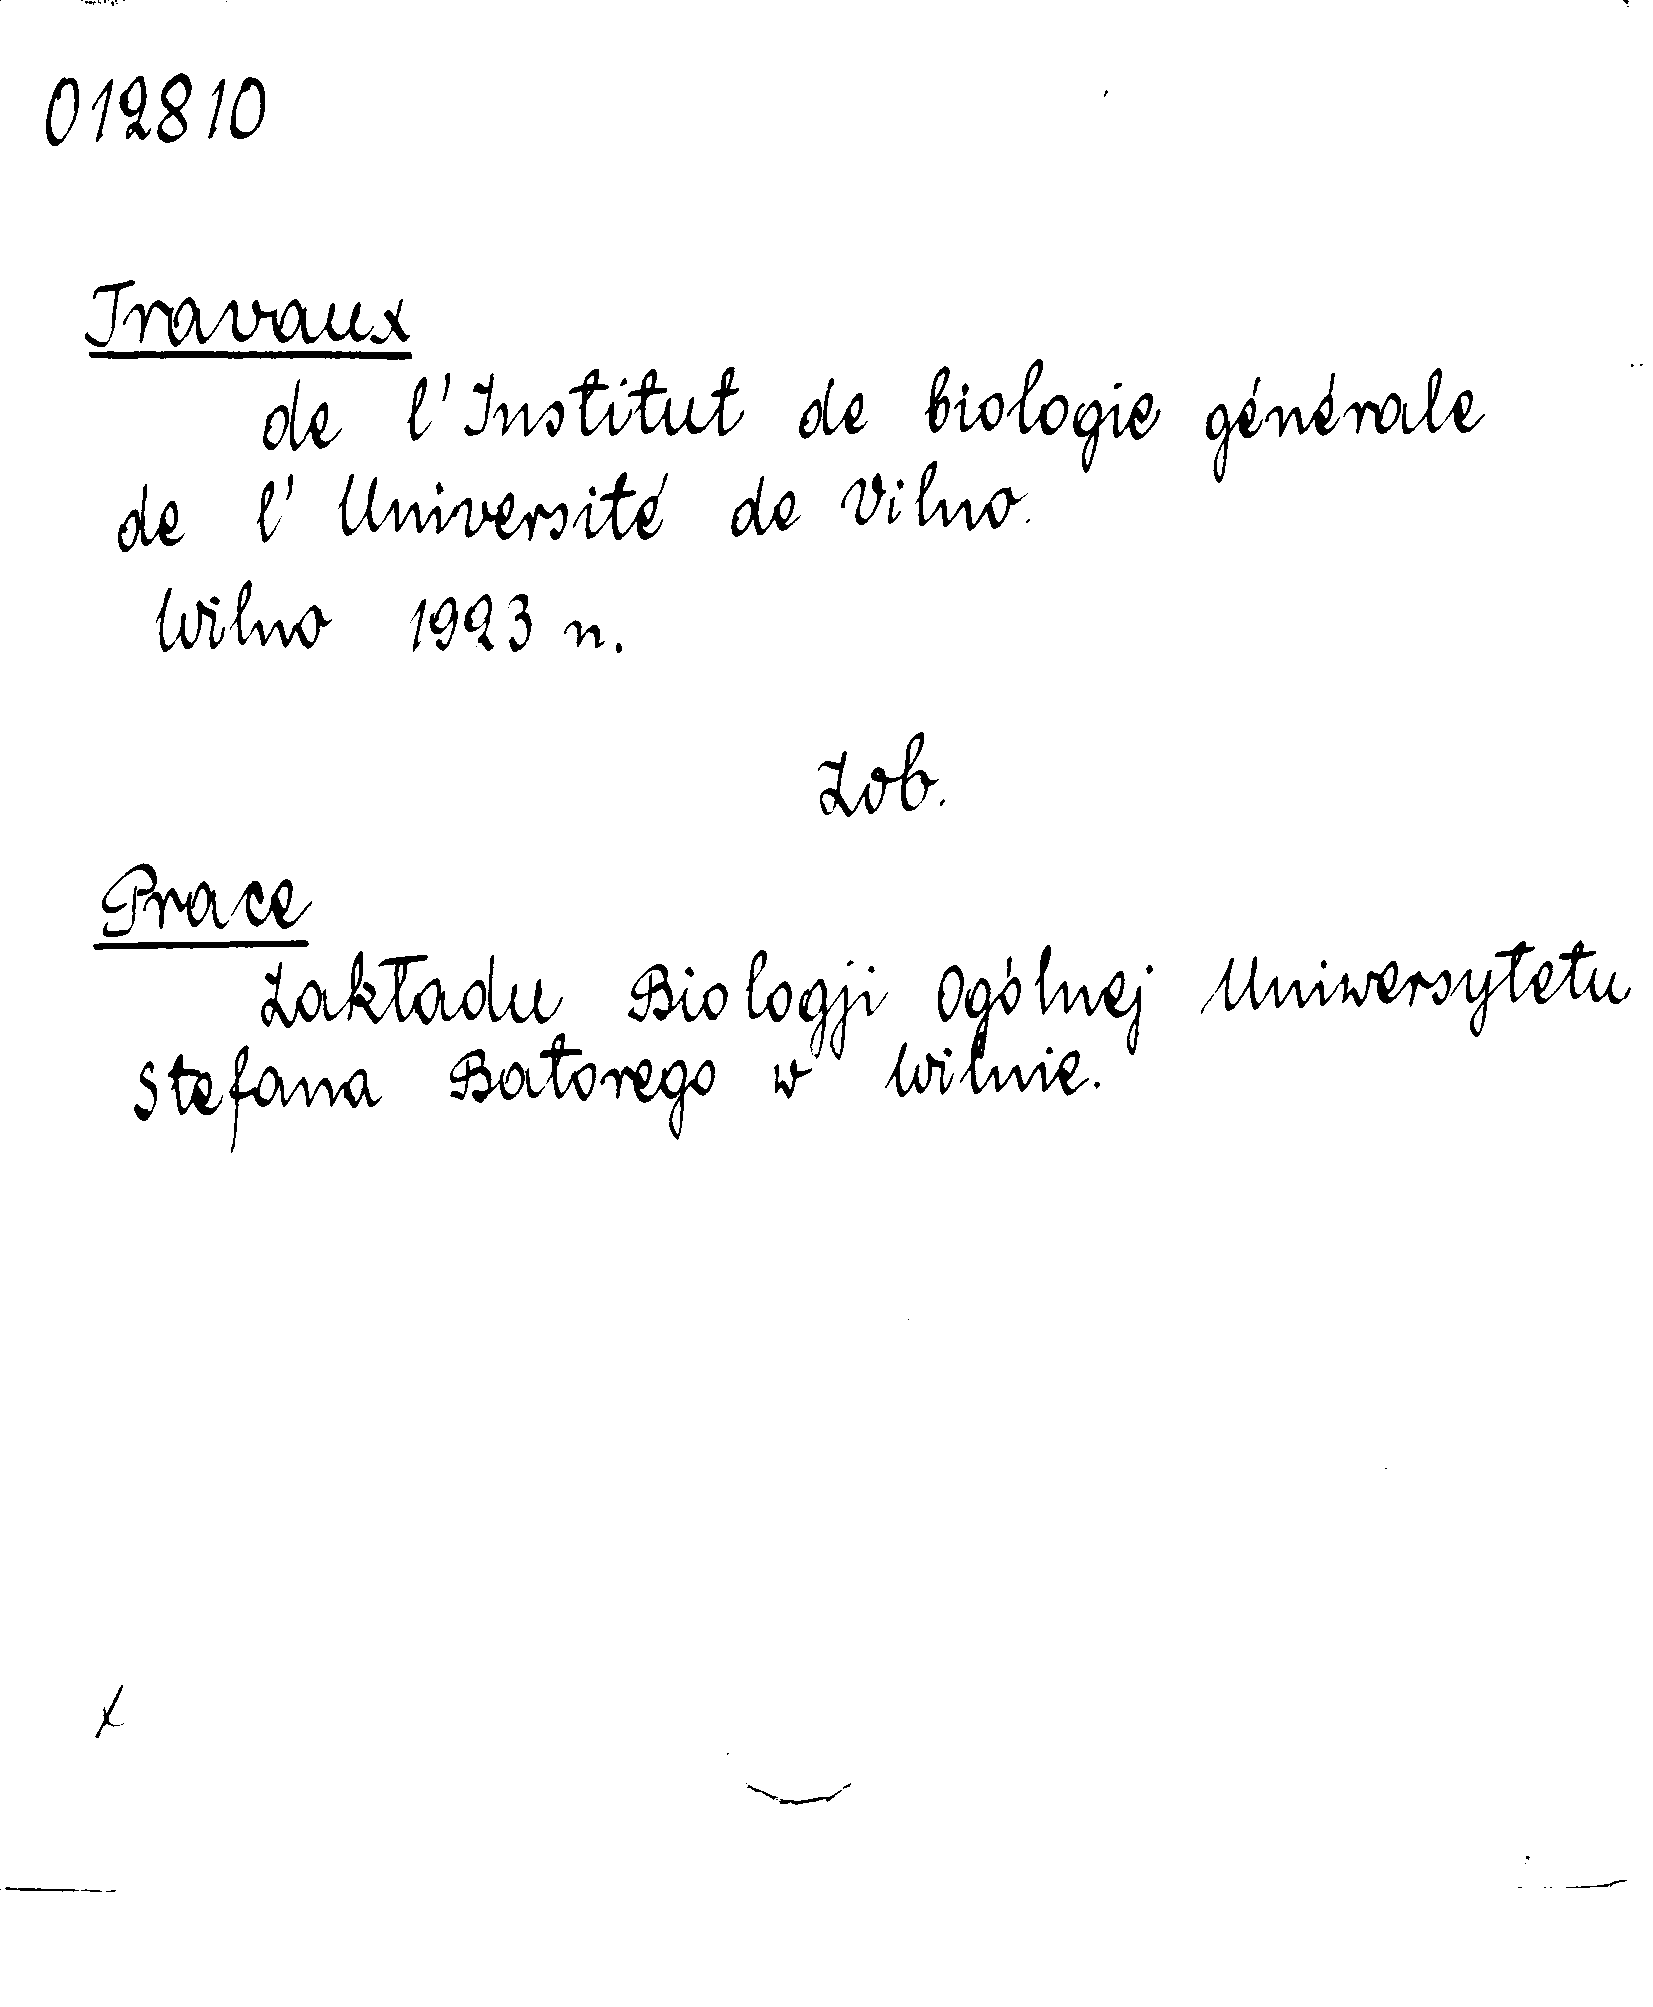 012810
Travaux
de l'Institut de biologie générale
de l'Université de Vilno.
Wilno 1923 n.
Zob.
Prace
Zakładu Biologji Ogólnej Uniwersytetu
Stefana Batorego w Wilnie.
x